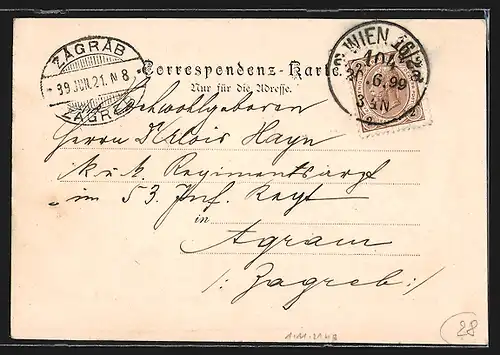 ZAGRAB
99 JUN. 21. N 8
ZAGRAB
WIEN
20. 6. 99
3
Correspondenz-Karte.
Nur für die Adresse.
Hochwohlgeboren
Herrn Dr Alois Hayn
k. u. k. Regimentsarzt
im 53. Inf. Regt
in
Agram
/: Zagreb :/
28